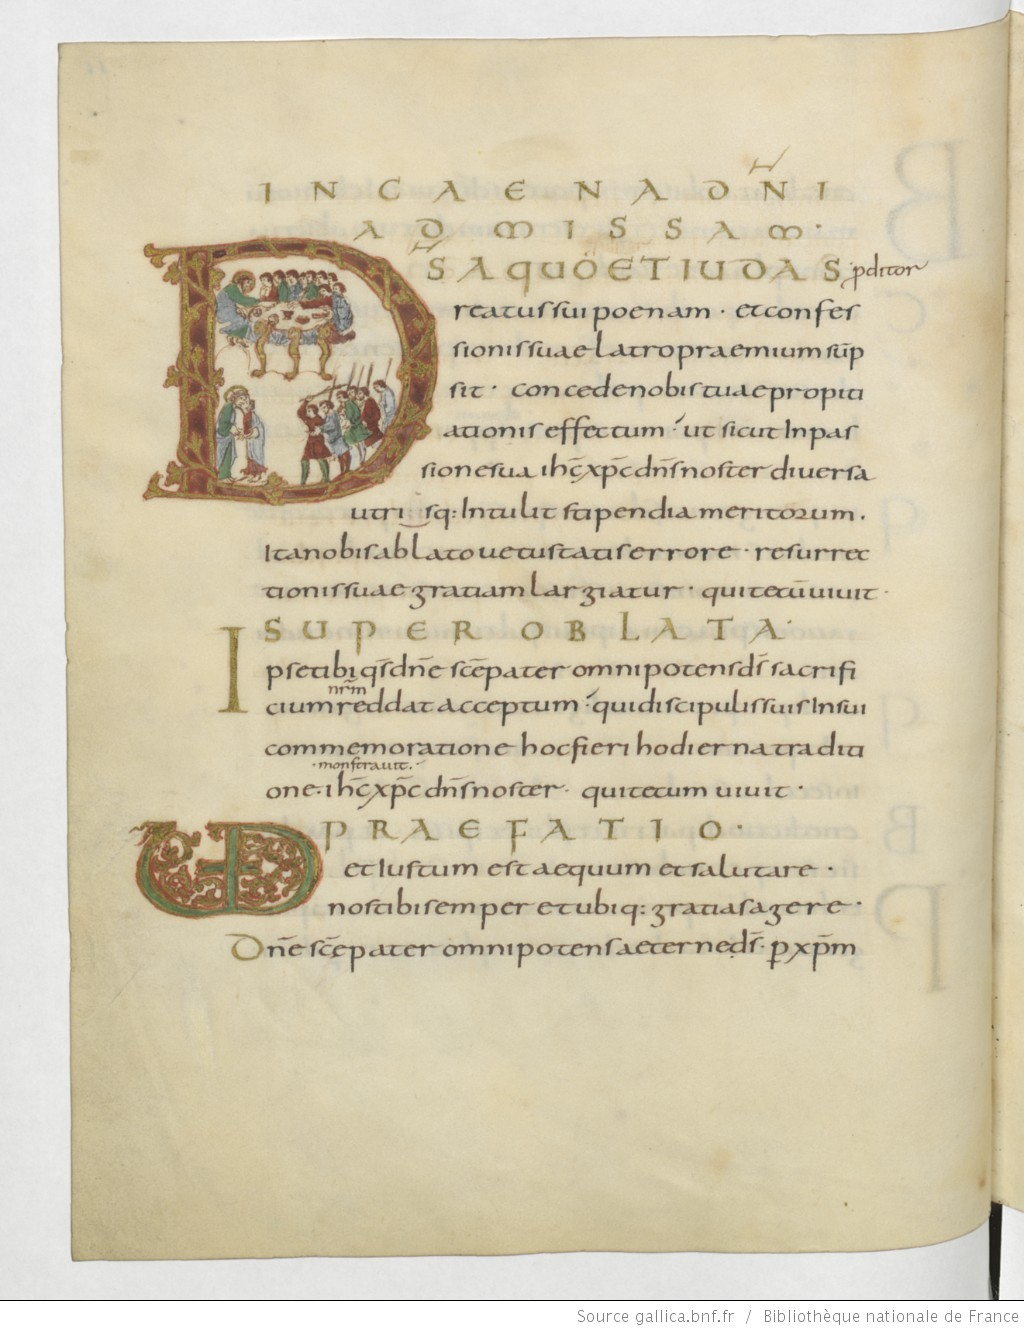 IN CAENA DÑI
AD MISSAM·
DS A QUO ET IUDAS pditor
reatus sui poenam · et confes
sionis suae latro praemium sūp
sit · concede nobis tuae propiti
ationis effectum · ut sicut In pas
sione sua ihc xpc dns noster diversa
utrisq: Intulit stipendia meritorum.
Ita nobis ablato vetustatis errore · resurrec
tionis suae gratiam largiatur · qui tecū vivit ·
SUPER OBLATA·
Ipse tibi qs dne sce pater omnipotens ds sacrifi
nrm
cium reddat acceptum · qui discipulis suis In sui
commemoratione hoc fieri hodierna traditi
·monstravit·
one · ihc xpc dns noster · qui tecum vivit ·
PRAEFATIO·
et Iustum est aequum et salutare ·
nos tibi semper et ubiq: gratias agere ·
Dne sce pater omnipotens aeterne ds · p xpm
Source gallica.bnf.fr / Bibliothèque nationale de France